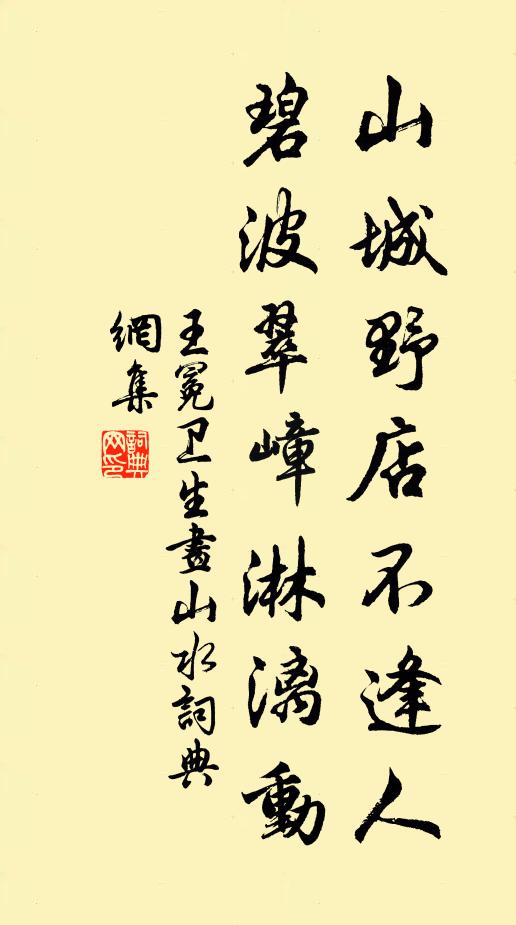 山城野店不逢人
碧波翠嶂淋漓動
王冕卫生畫山水詞典
網集
詞典
网印